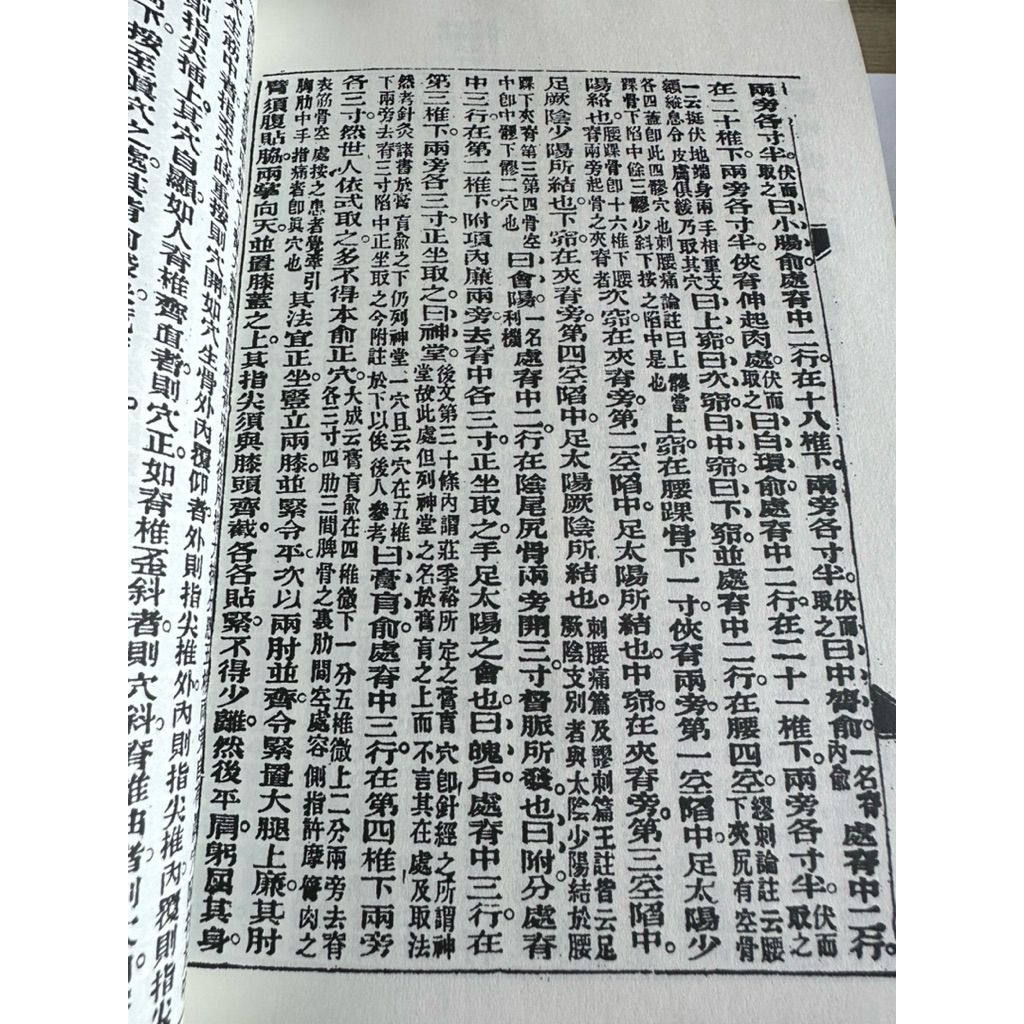 兩旁各寸半。伏而取之曰小腸俞處脊中二行在十八椎下。兩旁各寸半。伏而取之曰中膂俞一名脊內俞處脊中二行。
在二十椎下。兩旁各寸半。俠脊伸起肉處。伏而取之曰白環俞處脊中二行。在二十一椎下。兩旁各寸半。伏而取之
一云挺伏地端身兩手相重支額縱息令皮膚俱緩乃取其穴曰上窌。曰次窌。曰中窌。曰下窌。並處脊中二行。在腰四空。繆刺論註云腰下夾尻有空骨
各四蓋即此四髎穴也刺腰痛論註曰上髎當踝骨下陷中餘三髎少斜下按之陷中是也上窌在腰踝骨下一寸。俠脊兩旁。第一空陷中。足太陽少
陽絡也。腰踝骨即十六椎下腰脊兩旁起骨之夾脊者次窌在夾脊旁。第二空陷中。足太陽所結也。中窌在夾脊旁。第三空陷中。
足厥陰少陽所結也。下窌在夾脊旁。第四空陷中。足太陽厥陰所結也。刺腰痛篇及繆刺篇王註皆云足厥陰支別者與太陰少陽結於腰
踝下夾脊第三第四骨空中卽中髎下髎二穴也曰會陽。一名利機處脊中二行。在陰尾尻骨兩旁開三寸。督脈所發也。曰附分處脊
中三行。在第二椎下。附項內廉。兩旁去脊中各三寸。正坐取之。手足太陽之會也。曰魄戶處脊中三行。在
第三椎下。兩旁各三寸。正坐取之。曰神堂。後文第三十條內謂莊季裕所定之膏肓穴卽針經之所謂神堂故此處但列神堂之名於膏肓之上而不言其在處及取法
然考針灸諸書於膏肓俞之下仍列神堂一穴且云穴在五椎下兩旁去脊三寸陷中正坐取之今附註於下以俟後人參考曰膏肓俞處脊中三行。在第四椎下兩旁
各三寸。然世人依式取之。多不得本俞正穴。大成云膏肓俞在四椎微下一分五椎微上二分兩旁去脊各三寸四肋三間脾骨之裏肋間空處容側指許摩膂肉之
表筋骨空處按之患者覺牽引胸肋中手指痛者卽眞穴也其法宜正坐。豎立兩膝並緊。令平。次以兩肘並齊。令緊。置大腿上廉。其肘
臂須腹貼脇。兩掌向天。並置膝蓋之上。其指尖須與膝頭齊截。各各貼緊。不得少離。然後平肩。躬屈其身。